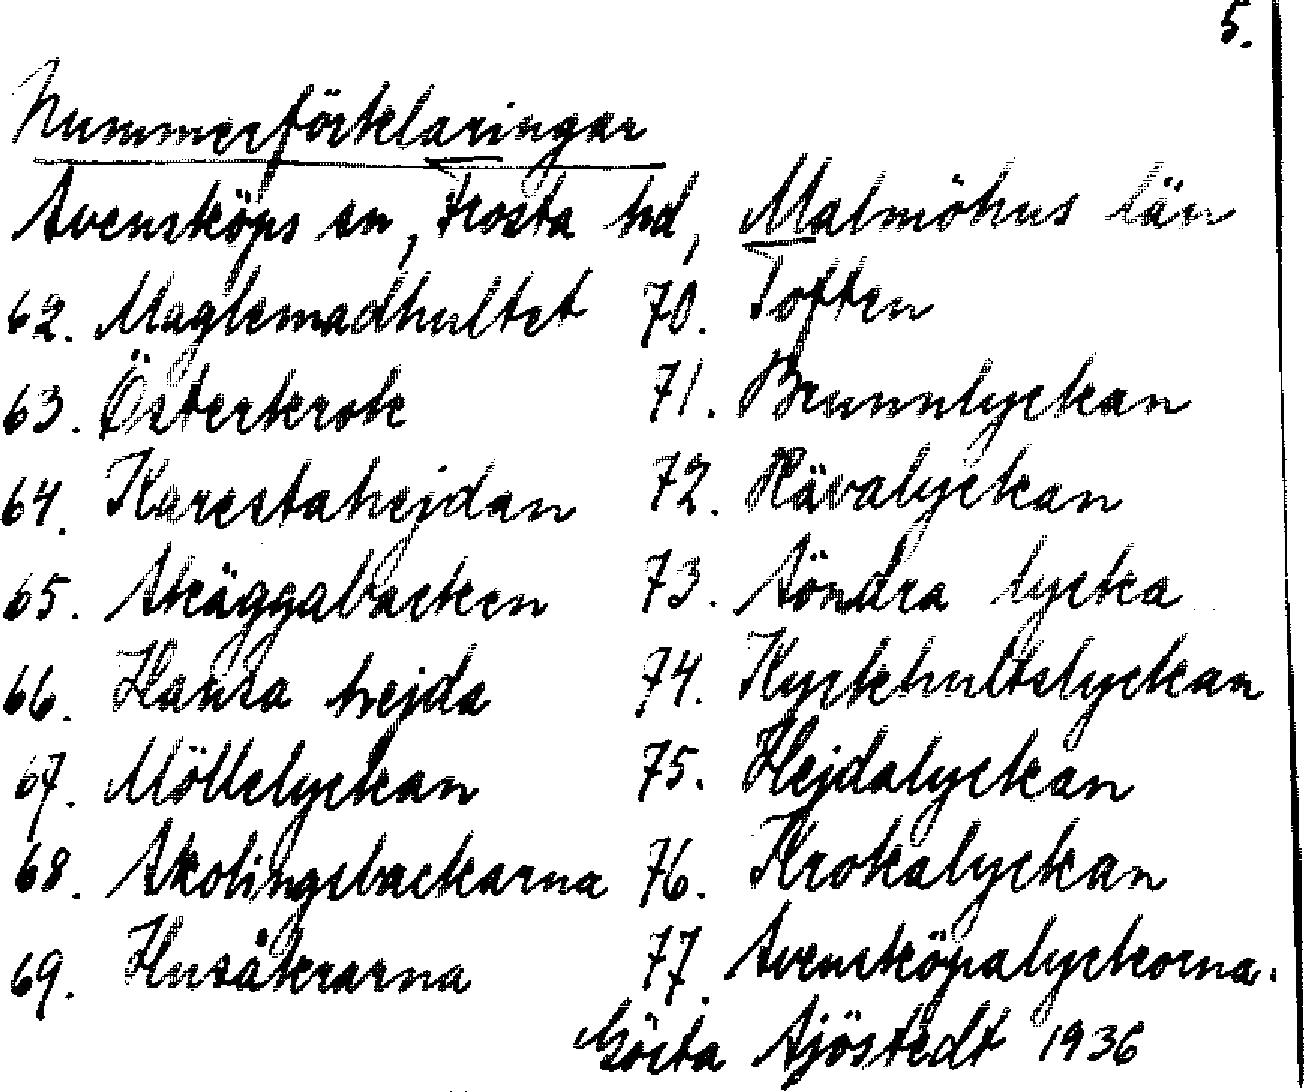 5.
Nummerförklaringar
Svensköps sn, Frosta hd, Malmöhus län
62. Maglemadhultet 70. Toften
63. Österkrok 71. Brunnlyckan
64. Karestahejdan 72. Hävalyckan
65. Skäggabacken 73. Söndra lycka
66. Hansa hejda 74. Kyrkhultslyckan
67. Möllelyckan 75. Hejdalyckan
68. Skolingsbackarna 76. Krokalyckan
69. Husåkrarna 77. Svensköpalyckorna.
Gösta Sjöstedt 1936